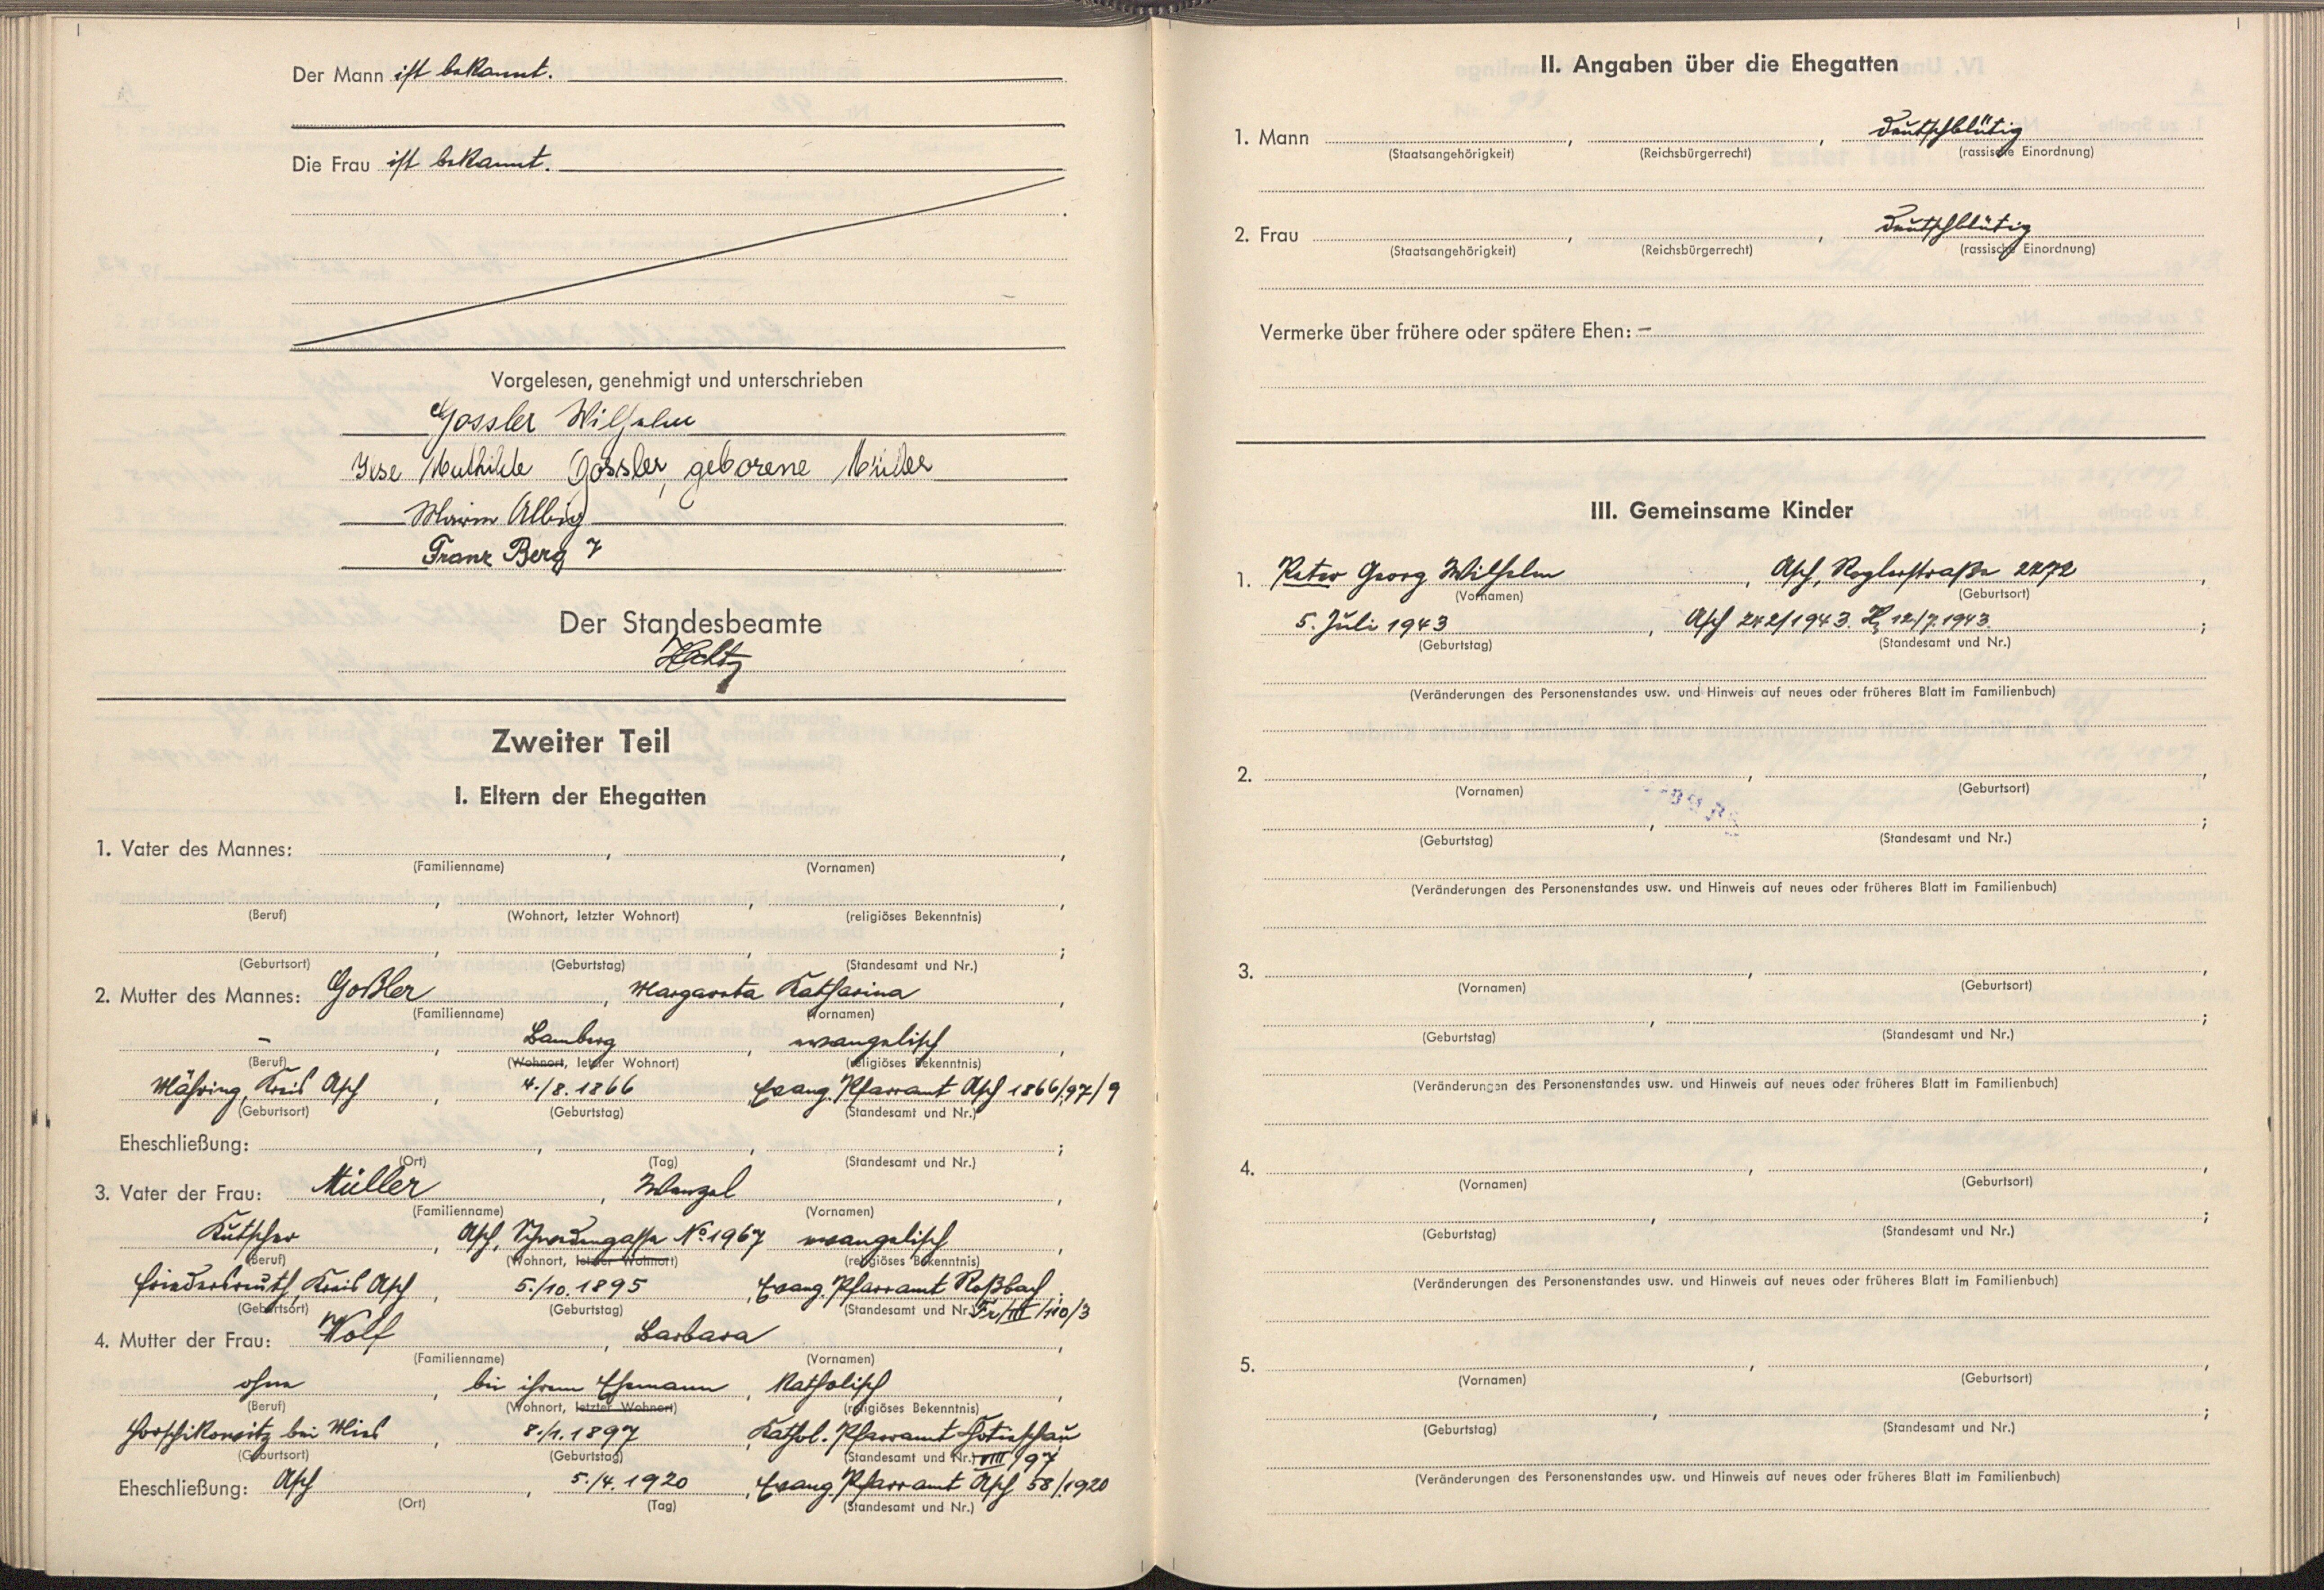 Der Mann ist bekannt.
Die Frau ist bekannt.
Vorgelesen, genehmigt und unterschrieben
Gossler Wilhelm
Ilse Mathilde Gossler, geborene Müller
Albig
Franz Berg
Der Standesbeamte
Zweiter Teil
I. Eltern der Ehegatten
1. Vater des Mannes: , ,
(Familienname) (Vornamen)
, , ,
(Beruf) (Wohnort, letzter Wohnort) (religiöses Bekenntnis)
, , ;
(Geburtsort) (Geburtstag) (Standesamt und Nr.)
2. Mutter des Mannes: Goßler, Margareta Katharina,
(Familienname) (Vornamen)
–, Bamberg, evangelisch,
(Beruf) (Wohnort, letzter Wohnort) (religiöses Bekenntnis)
Mähring, Kreis Asch, 4./8. 1866, Evang. Pfarramt Asch 1866/97/9
(Geburtsort) (Geburtstag) (Standesamt und Nr.)
Eheschließung: , , ;
(Ort) (Tag) (Standesamt und Nr.)
3. Vater der Frau: Müller, Wenzel,
(Familienname) (Vornamen)
Kutscher, Asch, Schwedengasse No 1967 evangelisch,
(Beruf) (Wohnort, letzter Wohnort) (religiöses Bekenntnis)
Friedersreuth, Kreis Asch, 5./10. 1895, Evang. Pfarramt Roßbach;
(Geburtsort) (Geburtstag) (Standesamt und Nr.) Fr/III/110/3
4. Mutter der Frau: Wolf, Barbara,
(Familienname) (Vornamen)
ohne, bei ihrem Ehemann, katholisch,
(Beruf) (Wohnort, letzter Wohnort) (religiöses Bekenntnis)
bei Mies, 8./1. 1897, Kathol. Pfarramt
(Geburtsort) (Geburtstag) (Standesamt und Nr.) VIII/97
Eheschließung: Asch, 5./4. 1920, Evang. Pfarramt Asch 58/1920
(Ort) (Tag) (Standesamt und Nr.)
II. Angaben über die Ehegatten
1. Mann , , deutschblütig
(Staatsangehörigkeit) (Reichsbürgerrecht) (rassische Einordnung)
2. Frau , , deutschblütig
(Staatsangehörigkeit) (Reichsbürgerrecht) (rassische Einordnung)
Vermerke über frühere oder spätere Ehen: –
III. Gemeinsame Kinder
1. Peter Georg Wilhelm, Asch, Roglerstraße 2272,
(Vornamen) (Geburtsort)
5. Juli 1943, Asch 242/1943. 12./7. 1943.;
(Geburtstag) (Standesamt und Nr.)
(Veränderungen des Personenstandes usw. und Hinweis auf neues oder früheres Blatt im Familienbuch)
2. , ,
(Vornamen) (Geburtsort)
, ;
(Geburtstag) (Standesamt und Nr.)
(Veränderungen des Personenstandes usw. und Hinweis auf neues oder früheres Blatt im Familienbuch)
3. , ,
(Vornamen) (Geburtsort)
, ;
(Geburtstag) (Standesamt und Nr.)
(Veränderungen des Personenstandes usw. und Hinweis auf neues oder früheres Blatt im Familienbuch)
4. , ,
(Vornamen) (Geburtsort)
, ;
(Geburtstag) (Standesamt und Nr.)
(Veränderungen des Personenstandes usw. und Hinweis auf neues oder früheres Blatt im Familienbuch)
5. , ,
(Vornamen) (Geburtsort)
, ;
(Geburtstag) (Standesamt und Nr.)
(Veränderungen des Personenstandes usw. und Hinweis auf neues oder früheres Blatt im Familienbuch)